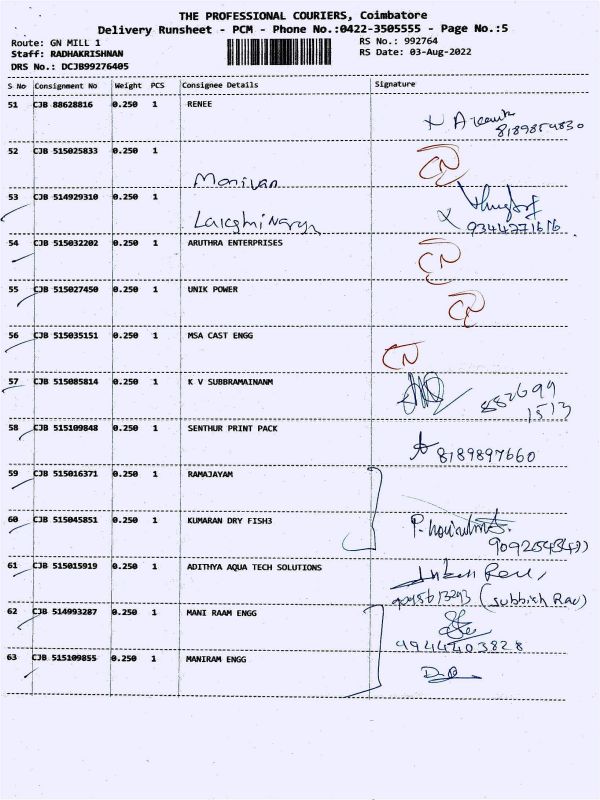 THE PROFESSIONAL COURIERS, Coimbatore
Delivery Runsheet - PCM - Phone No.:0422-3505555 - Page No.:5
Route: GN MILL 1
RS No.: 992764
Staff: RADHAKRISHNAN
RS Date: 03-Aug-2022
DRS No.: DCJB99276405
S No Consignment No Weight PCS Consignee Details Signature
51 CJB 88628816 0.250 1 RENEE
8189854830
52 CJB 515025833 0.250 1
CN
Manivan
53 CJB 514929310 0.250 1
9344271616
54 CJB 515032202 0.250 1 ARUTHRA ENTERPRISES
CN
55 CJB 515027450 0.250 1 UNIK POWER
CN
56 CJB 515035151 0.250 1 MSA CAST ENGG
CN
57 CJB 515085814 0.250 1 K V SUBBRAMAINANM
882699
1513
58 CJB 515109848 0.250 1 SENTHUR PRINT PACK
8189897660
59 CJB 515016371 0.250 1 RAMAJAYAM
60 CJB 515045851 0.250 1 KUMARAN DRY FISH3
61 CJB 515015919 0.250 1 ADITHYA AQUA TECH SOLUTIONS
(Subbish Rao)
62 CJB 514993287 0.250 1 MANI RAAM ENGG
9944403828
63 CJB 515109855 0.250 1 MANIRAM ENGG